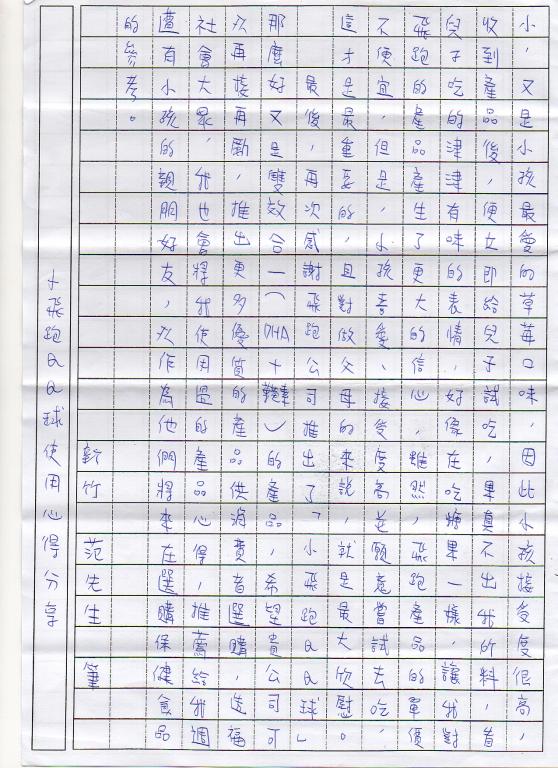 小，又是小孩最愛的草莓口味，因此小孩接受度很高，
收到產品後，便立即給兒子試吃，果真不出我所料，看
兒子吃的津津有味的表情，好像在吃糖果一樣，讓我對
飛跑的產品產生了更大的信心，雖然，飛跑產品的單價
不便宜，但是，小孩喜愛、接受度高，願意嘗試去吃，
這才是最重要的，且對做父母的來說，就是最大欣慰。
最後，再次感謝飛跑公司推出了「小飛跑QQ球」
那麼好又是雙效合一（DHA＋葉黃素）的產品，希望貴公司可
以再接再勵，推出更多優質的產品供消費者選購，造福
社會大眾，我也會將我使用過的產品心得，推薦給我週
遭有小孩的親朋好友，以作為他們將來在選購保健食品
的參考。
新竹 范先生 筆
小飛跑QQ球使用心得分享